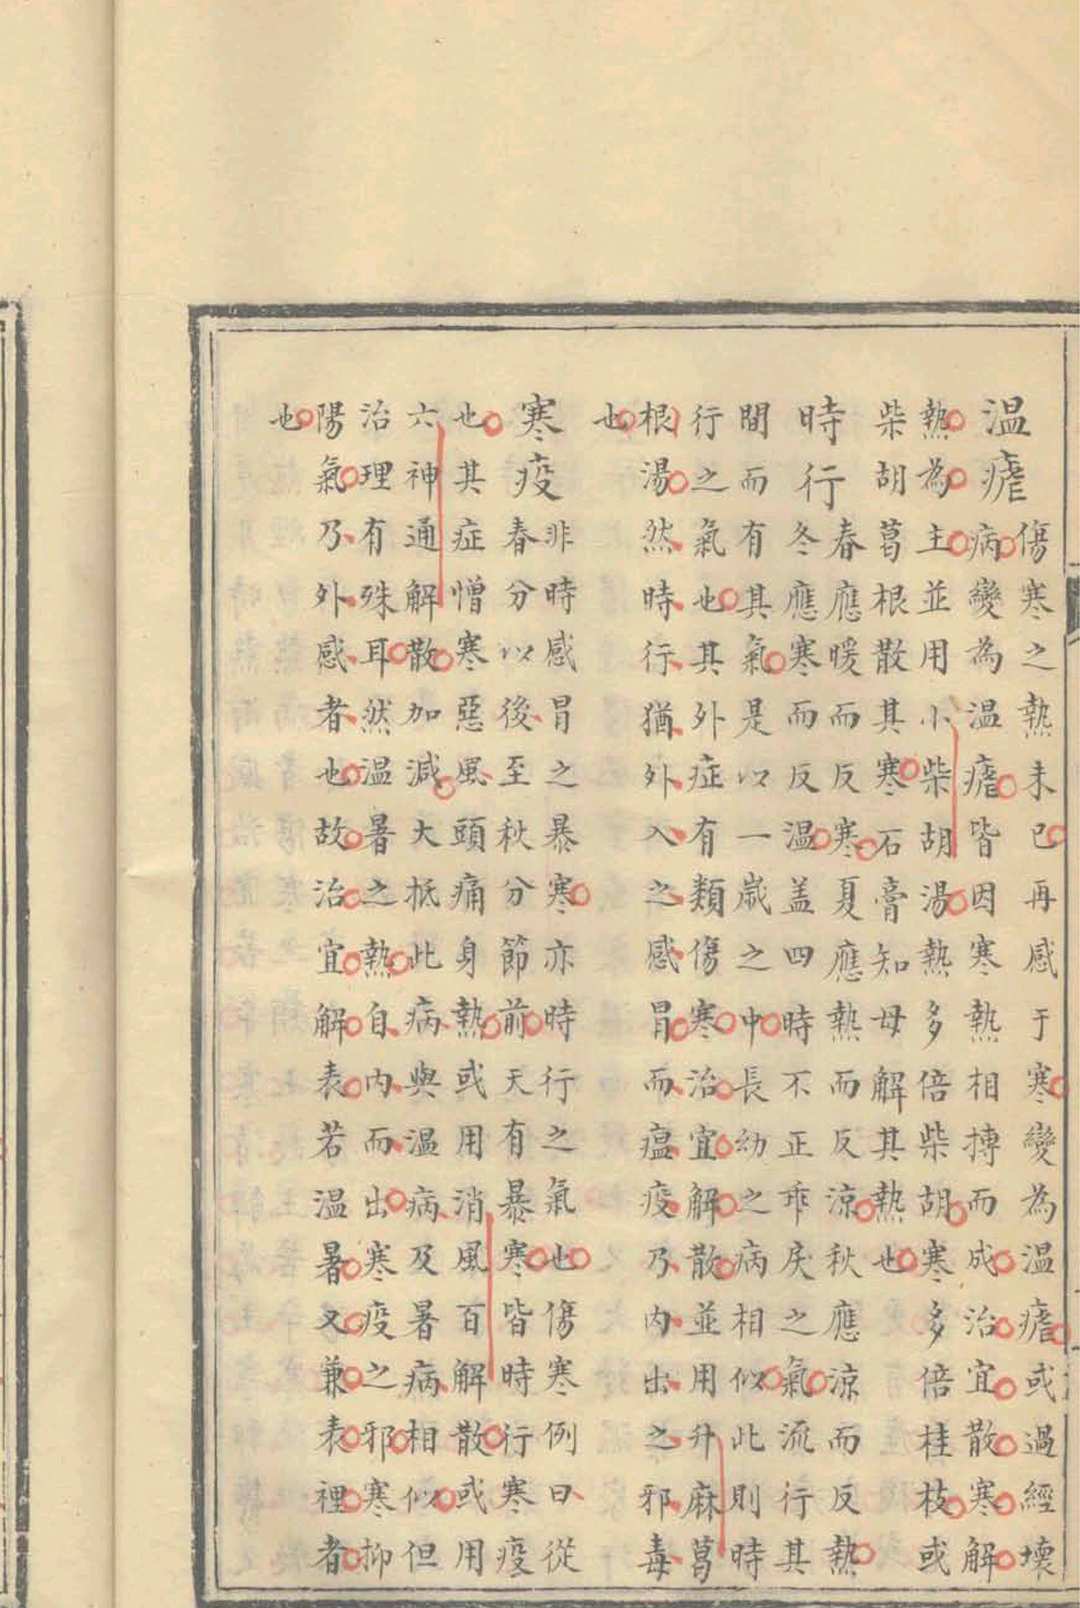 溫瘧
傷寒之熱未已再感于寒變為溫瘧或過經壞
病變為溫瘧皆因寒熱相摶而成治宜散寒解
熱為主並用小柴胡湯熱多倍柴胡寒多倍桂枝或
柴胡葛根散其寒石膏知母解其熱也
時行
春應暖而反寒夏應熱而反涼秋應涼而反熱
冬應寒而反溫盖四時不正乖戾之氣流行其
間而有其氣是以一歲之中長幼之病相似此則時
行之氣也其外症有類傷寒治宜解散並用升麻葛
根湯然時行猶外入之感冒而瘟疫乃内出之邪毒
也
寒疫
非時感冒之暴寒亦時行之氣也傷寒例曰從
春分以後至秋分節前天有暴寒皆時行寒疫
也其症憎寒惡風頭痛身熱或用消風百解散或用
六神通解散加減大抵此病與溫病及暑病相似但
治理有殊耳然溫暑之熱自内而出寒疫之邪寒抑
陽氣乃外感者也故治宜解表若溫暑又兼表裡者
也